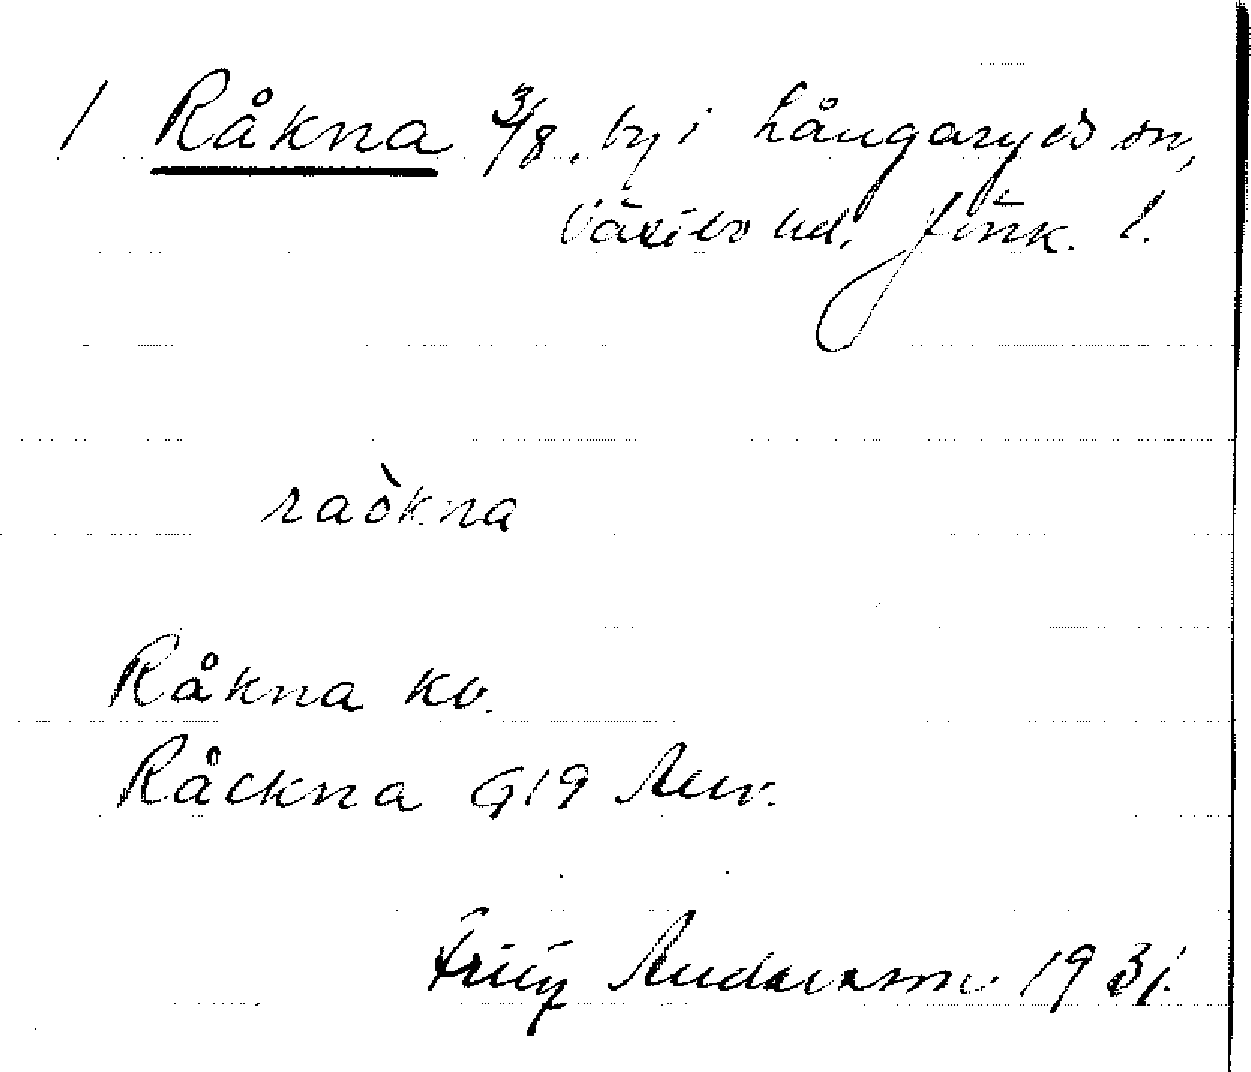 1 Råkna 3/8, by i Långaryds sn,
Västbo hd. Jönk. l.
raòkna
Råkna kv.
Råckna G19 Anv.
Fritz Andersson 1931.